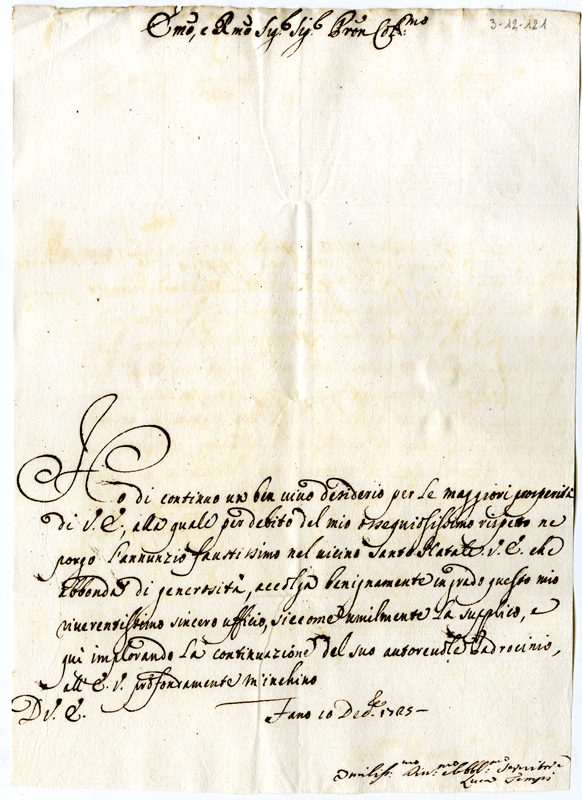 3-12-121
Emo, e Rmo Sig.r Sig.r Pron Col.mo
Ho di continuo un ben vivo desiderio per le maggiori prosperità
di V. E., alla quale per debito del mio ossequiosissimo rispetto ne
porgo l'annunzio faustissimo nel vicino Santo Natale. V. E. che
abbonda di generosità, accolga benignamente in grado questo mio
riverentissimo sincero ufficio, siccome umilmente la supplico, e
qui implorando la continuazione del suo autorevole Padrocinio,
all'E. V. profondamente m'inchino
Di V. E. Fano 10 Dec.e 1725
Umilis.mo Servitore
Luca